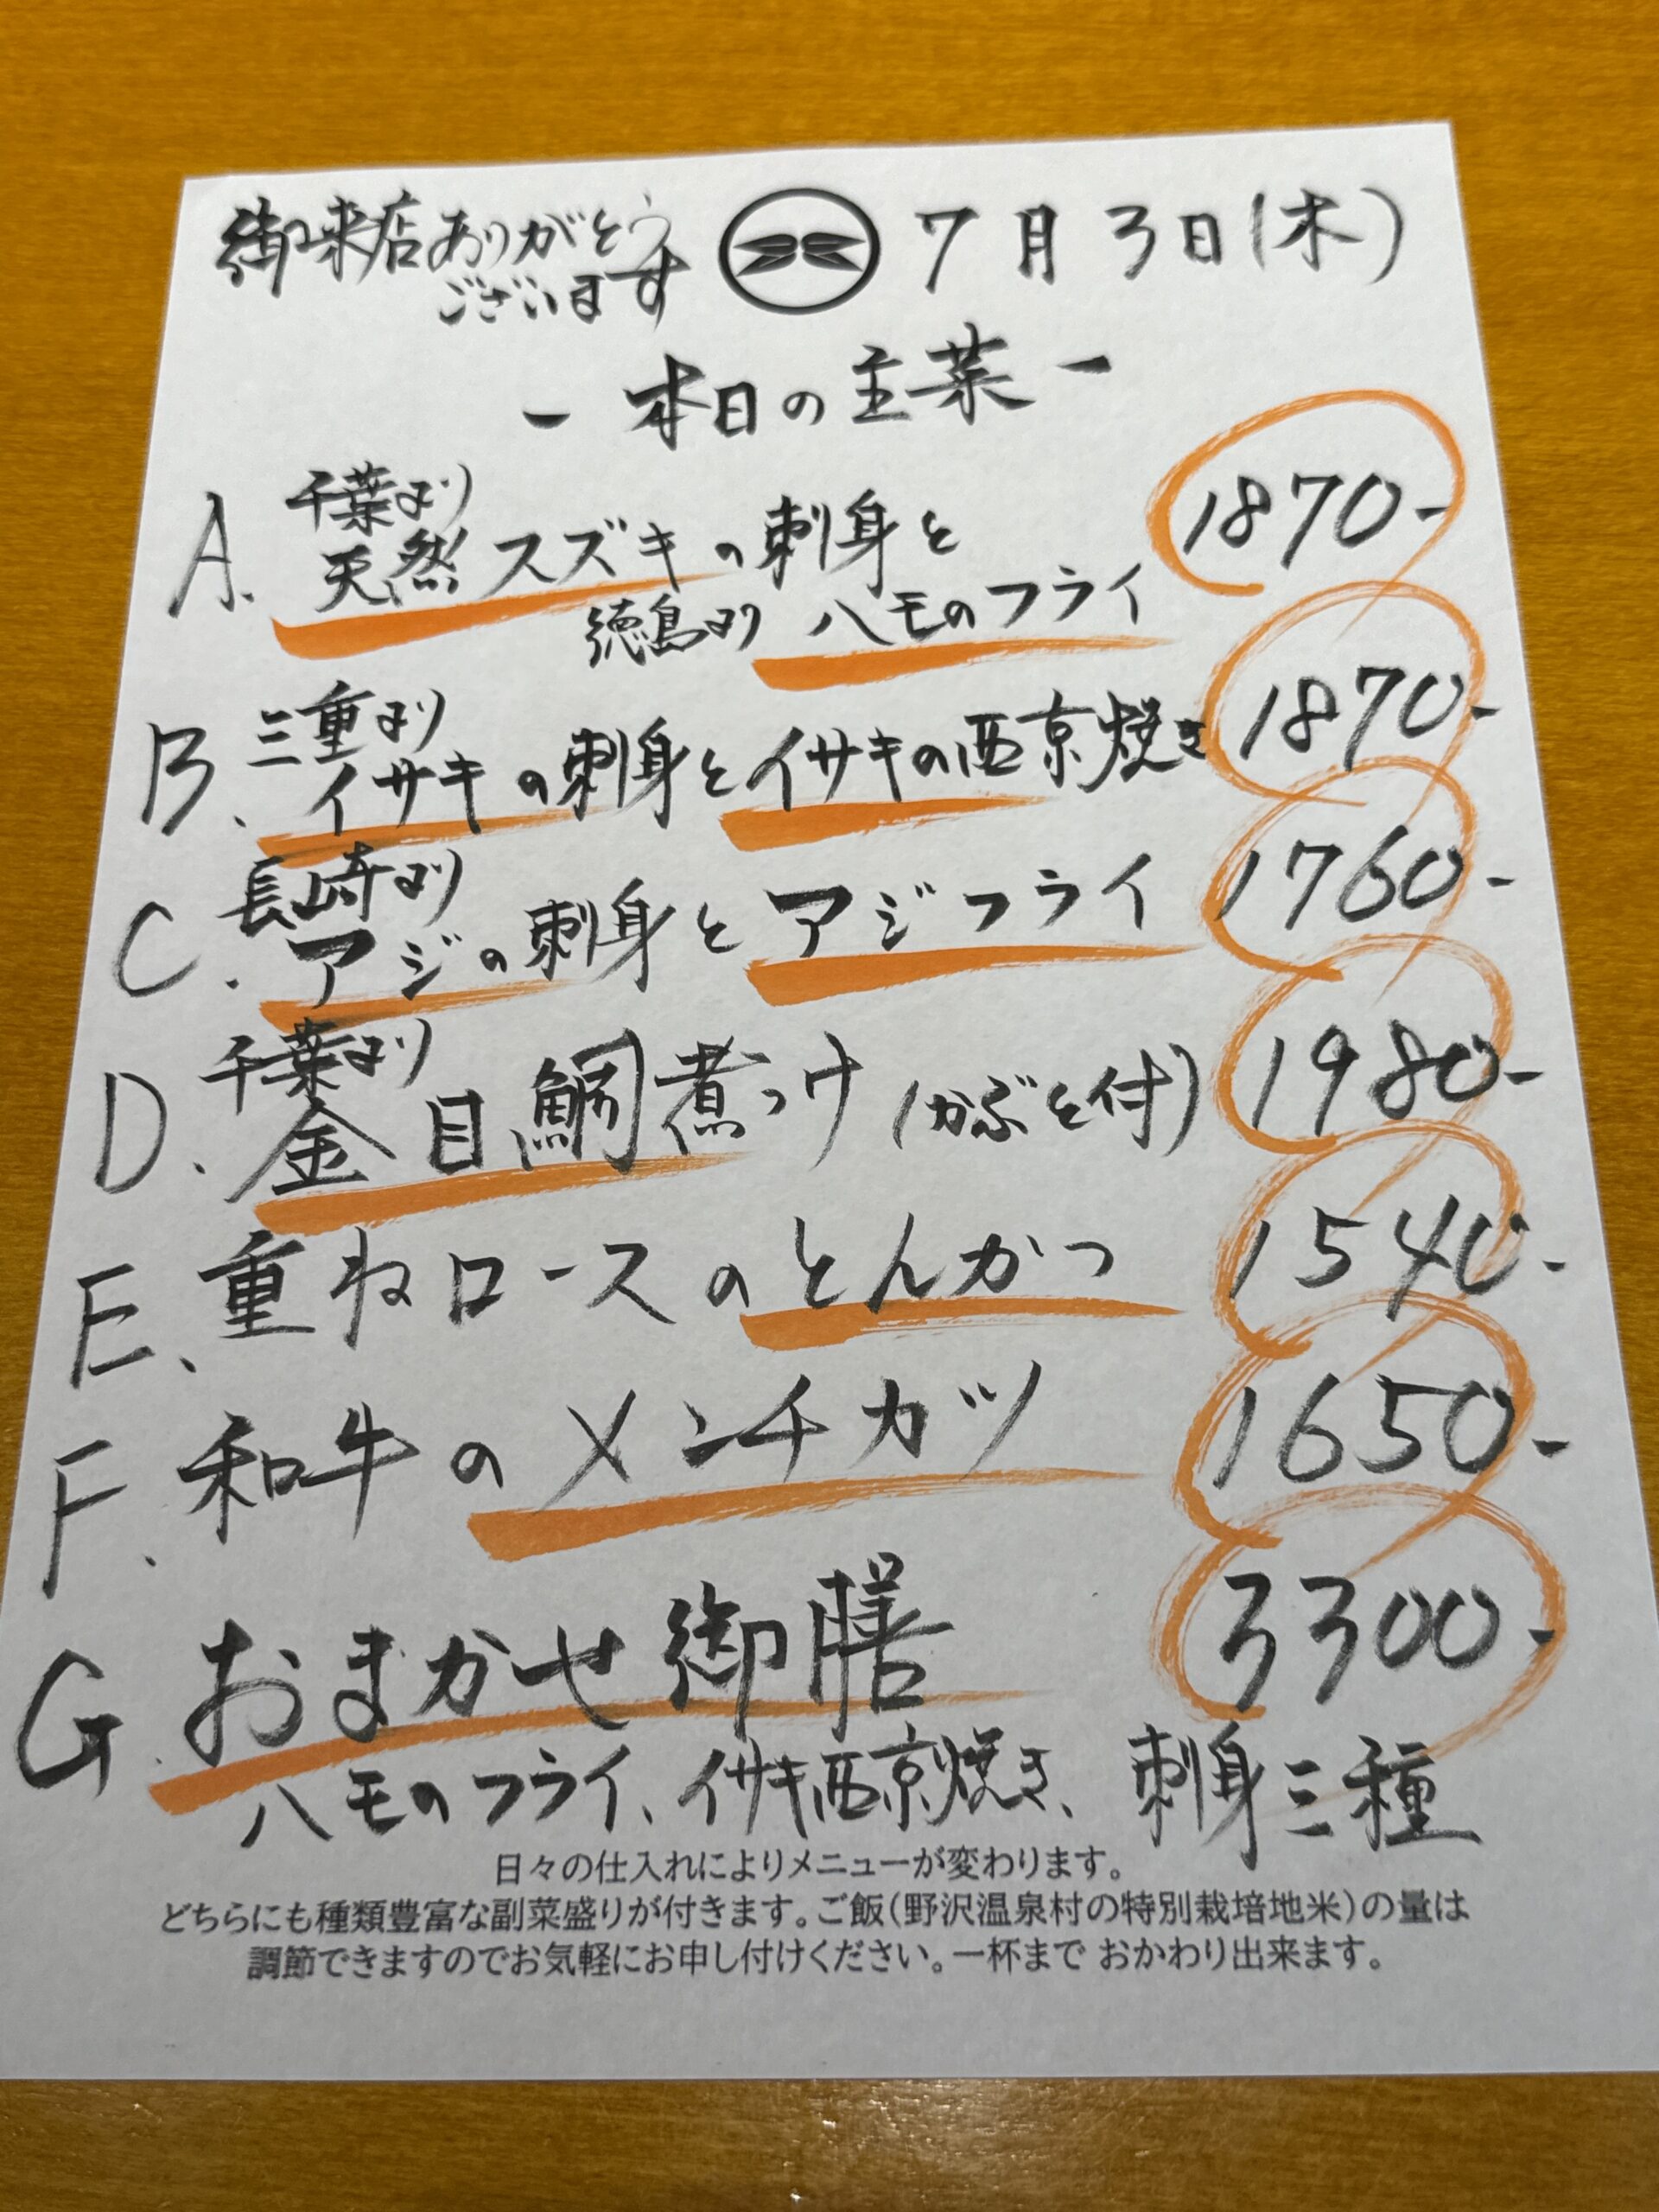 御来店ありがとう
ございます
7月3日(木)
- 本日の主菜 -
千葉より
A. 天然スズキの刺身と 1870-
徳島より ハモのフライ
三重より
B. イサキの刺身とイサキの西京焼き 1870-
長崎より
C. アジの刺身とアジフライ 1760-
千葉より
D. 金目鯛煮つけ(かぶと付) 1980-
E. 重ねロースのとんかつ 1540-
F. 和牛のメンチカツ 1650-
G. おまかせ御膳 3300-
ハモのフライ、イサキ西京焼き、刺身三種
日々の仕入れによりメニューが変わります。
どちらにも種類豊富な副菜盛りが付きます。ご飯(野沢温泉村の特別栽培地米)の量は
調節できますのでお気軽にお申し付けください。一杯まで おかわり出来ます。